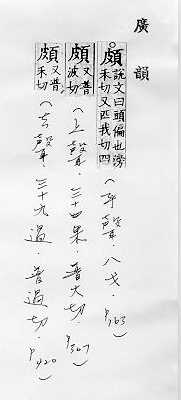 廣韻
頗 說文曰頭偏也滂禾切又匹我切四(平聲．八戈．P.163)
頗 又普波切(上聲．三十四果．普火切．P.307)
頗 又普禾切(去聲．三十九過．普過切．P.420)